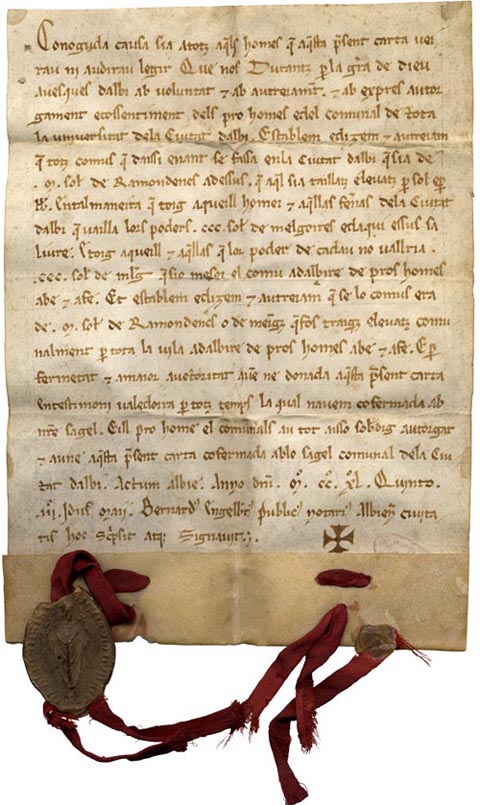 Conoguda causa sia atotz aqls homes q aqsta psent carta vei
rau ni audirau legir Que nos Durantz p la gra de dieu
avesques dalbi ab voluntat & ab autreiamt. & ab expres autor
gament ecossentiment dels pro homes edel comunal de tota
la universitat dela Ciutat dalbi. Establem edizem & autreiam
q totz comus q daissi enant se fassa enla Ciutat dalbi q sia de
.M. sol de Ramondencs adessus. q aql sia taillatz elevatz p sol ep
q toig aqueill homei & aqllas fenas dela Ciutat
dalbi q vailla lors poders .ccc. sol de melgoires edaqui essus sa
livre. toig aqueill & aqllas q lor poder de cadau no vallria
.ccc. sol de q sio mesei el comu adalbire de pros homes
abe & afe. Et establem edizem & autreiam q se lo comus era
de .M. sol de Ramondencs o de q fos traigz elevatz comu
nalment p tota la vila adalbire de pros homes abe & afe. E p
fermetat & amaior auctoritat ne donada aqsta psent carta
entestimoni valedoira p totz temps la qual navem cofermada ab
nre sagel. Eill pro home el comunals au tot aisso autorgat
& aqsta psent carta cofermada ablo sagel comunal dela Ciu
tat dalbi. Actum albie. Anyo dni .M. CC. XL. Quinto.
Idus maii. Bernard public notari Albien civita
tis hoc scripsit atq signavit.